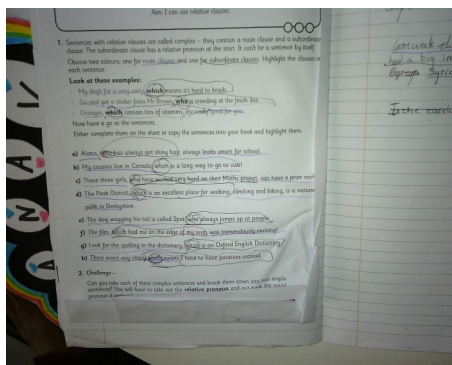 Aim: I can use relative clauses
1. Sentences with relative clauses are called complex – they contain a main clause and a subordinate
clause. The subordinate clause has a relative pronoun at the start. It can't be a sentence by itself.
Choose two colours, one for main clauses and one for subordinate clauses. Highlight the clauses in
each sentence.
Look at these examples:
- My dog's fur is very curly, which means it's hard to brush.
- Go and get a sticker from Mr Brown, who is standing at the finish line.
- Oranges, which contain lots of vitamins, are really good for you.
Now have a go at the sentences.
Either complete them on the sheet or copy the sentences into your book and highlight them.
a) Alana, who has always got shiny hair, always looks smart for school.
b) My cousins live in Canada, which is a long way to go to visit!
c) These three girls, who have worked very hard on their Maths project, can have a prize each
d) The Peak District, which is an excellent place for walking, climbing and biking, is a national
park in Derbyshire.
e) The dog wagging his tail is called Spot, who always jumps up at people.
f) The film, which had me on the edge of my seat, was tremendously exciting!
g) Look for the spelling in the dictionary, which is an Oxford English Dictionary.
h) There aren't any chips, which means I have to have potatoes instead.
2. Challenge –
Can you take each of these complex sentences and break them down into two simple
sentences? You will have to take out the relative pronoun and put back the noun
had a big
A
N
A